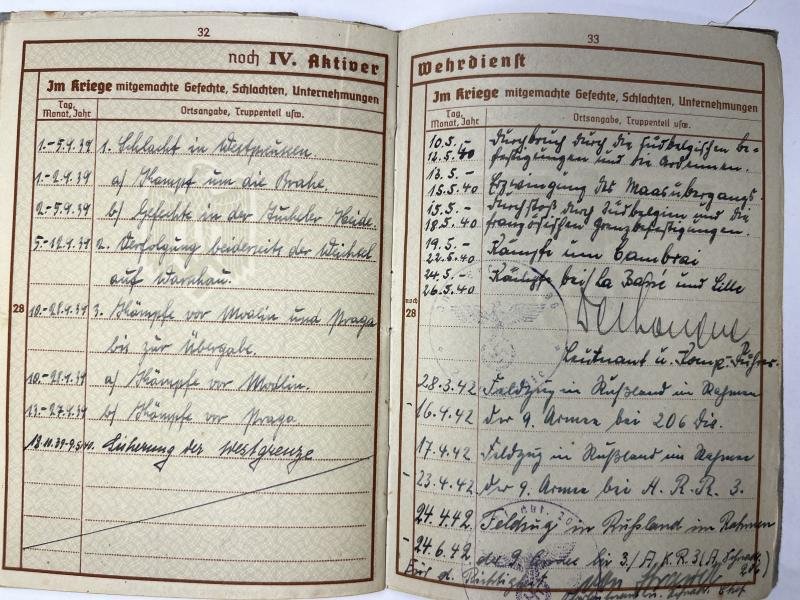 32
noch IV. Aktiver
Im Kriege mitgemachte Gefechte, Schlachten, Unternehmungen
Tag, Monat, Jahr
Ortsangabe, Truppenteil usw.
1.-5.9.39 1. Schlacht in Westpreussen.
1.-2.9.39 a) Kampf um die Brahe.
2.-5.9.39 b) Gefechte in der Tucheler Heide.
5.-12.9.39 2. Verfolgung beiderseits der Weichsel
auf Warschau.
28
10.-28.9.39 3. Kämpfe vor Modlin und Praga
bis zur Übergabe.
10.-28.9.39 a) Kämpfe vor Modlin.
13.-27.9.39 b) Kämpfe vor Praga.
13.10.39-9.5.40. Sicherung der Westgrenze
33
Wehrdienst
Im Kriege mitgemachte Gefechte, Schlachten, Unternehmungen
Tag, Monat, Jahr
Ortsangabe, Truppenteil usw.
10.5.- Durchbruch durch die südbelgischen Be-
12.5.40 festigungen und die Ardennen.
13.5.- Erzwingung des Maasübergangs.
15.5.40
15.5.- Durchstoß durch Südbelgien und die
18.5.40 französischen Grenzbefestigungen.
19.5.- Kämpfe um Cambrai
22.5.40
24.5.- Kämpfe bei La Bassé und Lille
26.5.40
noch 28
Leutnant u. Komp.-Führer.
28.3.42 Feldzug in Rußland im Rahmen
- 16.4.42 der 9. Armee bei 206 Div.
17.4.42 Feldzug in Rußland im Rahmen
- 23.4.42 der 9. Armee bei A. R. R. 3.
24.4.42 Feldzug in Rußland im Rahmen
- 24.6.42 der 9. Armee bei 3./A.K.R.3
Für d. Richtigkeit